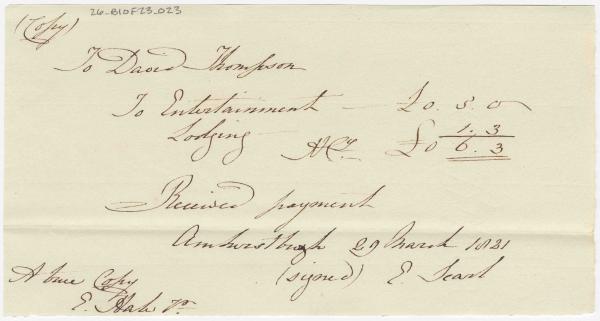 26-B10F23-023
(Copy)
To David Thompson
To Entertainment — £0. 5. 0
Lodging — 1. 3
£0 6. 3
Received payment
Amherstburgh 29 March 1821
(signed) E. Searl
A true Copy
E. Hale